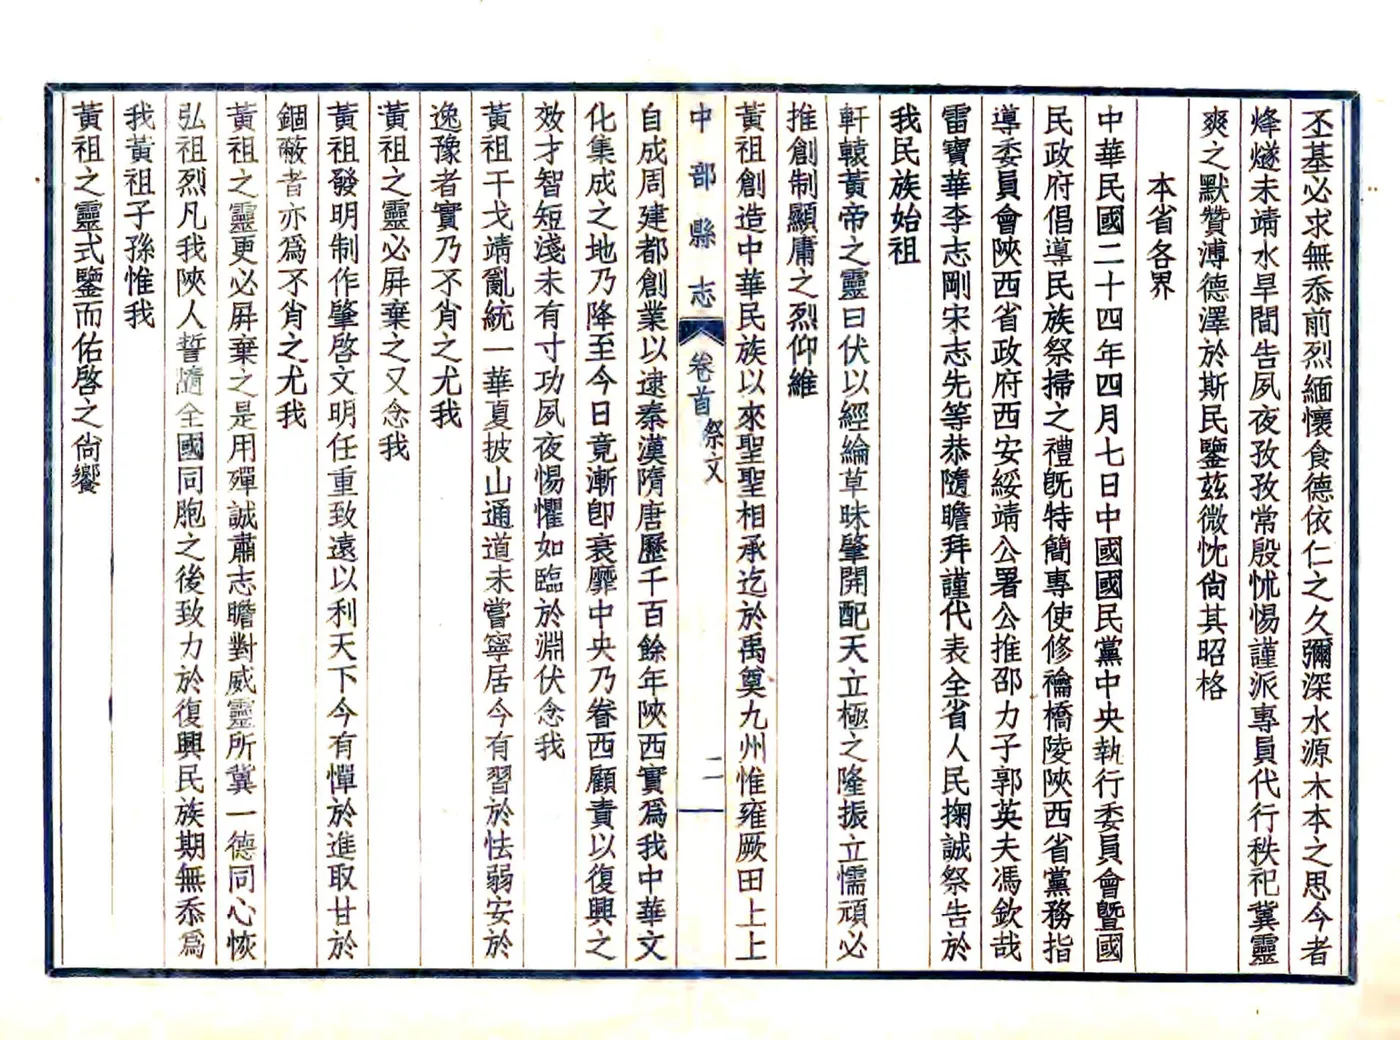 丕基必求無忝前烈緬懷食德依仁之久彌深水源木本之思今者
烽燧未靖水旱間告夙夜孜孜常殷怵惕謹派專員代行秩祀冀靈
爽之默贊溥德澤於斯民鑒茲微忱尙其昭格
本省各界
中華民國二十四年四月七日中國國民黨中央執行委員會曁國
民政府倡導民族祭掃之禮旣特簡專使修禴橋陵陝西省黨務指
導委員會陝西省政府西安綏靖公署公推邵力子郭英夫馮欽哉
雷寶華李志剛宋志先等恭隨瞻拜謹代表全省人民掬誠祭告於
我民族始祖
軒轅黃帝之靈曰伏以經綸草昧肇開配天立極之隆振立懦頑必
推創制顯庸之烈仰維
黃祖創造中華民族以來聖聖相承迄於禹奠九州惟雍厥田上上
中部縣志
卷首 祭文
二
自成周建都創業以逮秦漢隋唐歷千百餘年陝西實爲我中華文
化集成之地乃降至今日竟漸卽衰靡中央乃眷西顧責以復興之
效才智短淺未有寸功夙夜惕懼如臨於淵伏念我
黃祖干戈靖亂統一華夏披山通道未嘗寧居今有習於怯弱安於
逸豫者實乃不肖之尤我
黃祖之靈必屛棄之又念我
黃祖發明制作肇啓文明任重致遠以利天下今有憚於進取甘於
錮蔽者亦爲不肖之尤我
黃祖之靈更必屛棄之是用殫誠肅志瞻對威靈所冀一德同心恢
弘祖烈凡我陝人誓隨全國同胞之後致力於復興民族期無忝爲
我黃祖子孫惟我
黃祖之靈式鑒而佑啓之尙饗